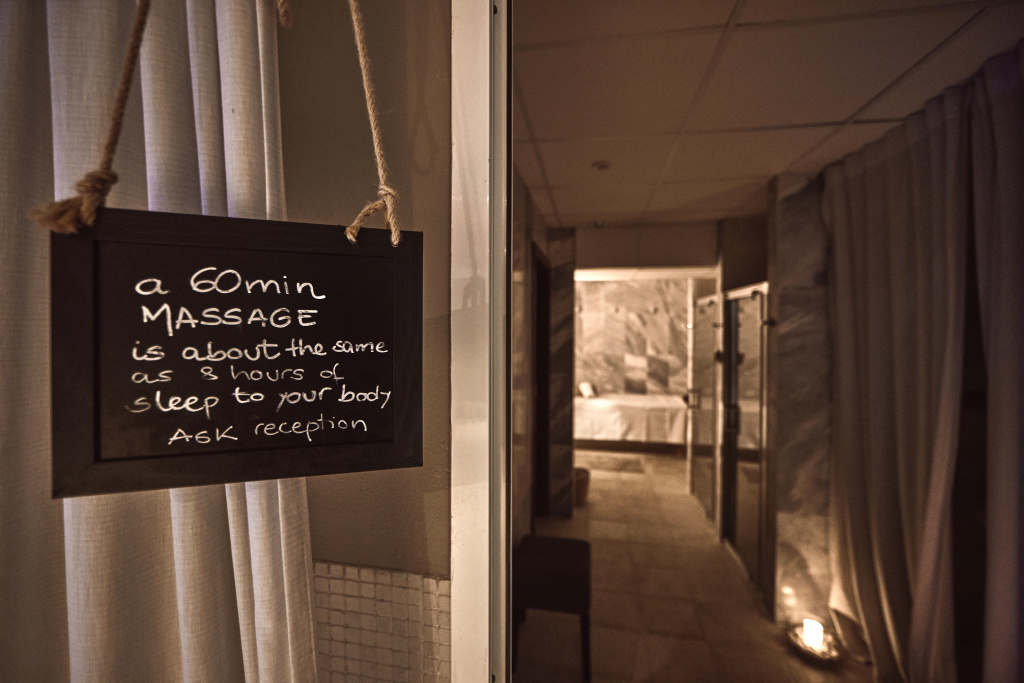 a 60min
MASSAGE
is about the same
as 8 hours of
sleep to your body
ASK reception